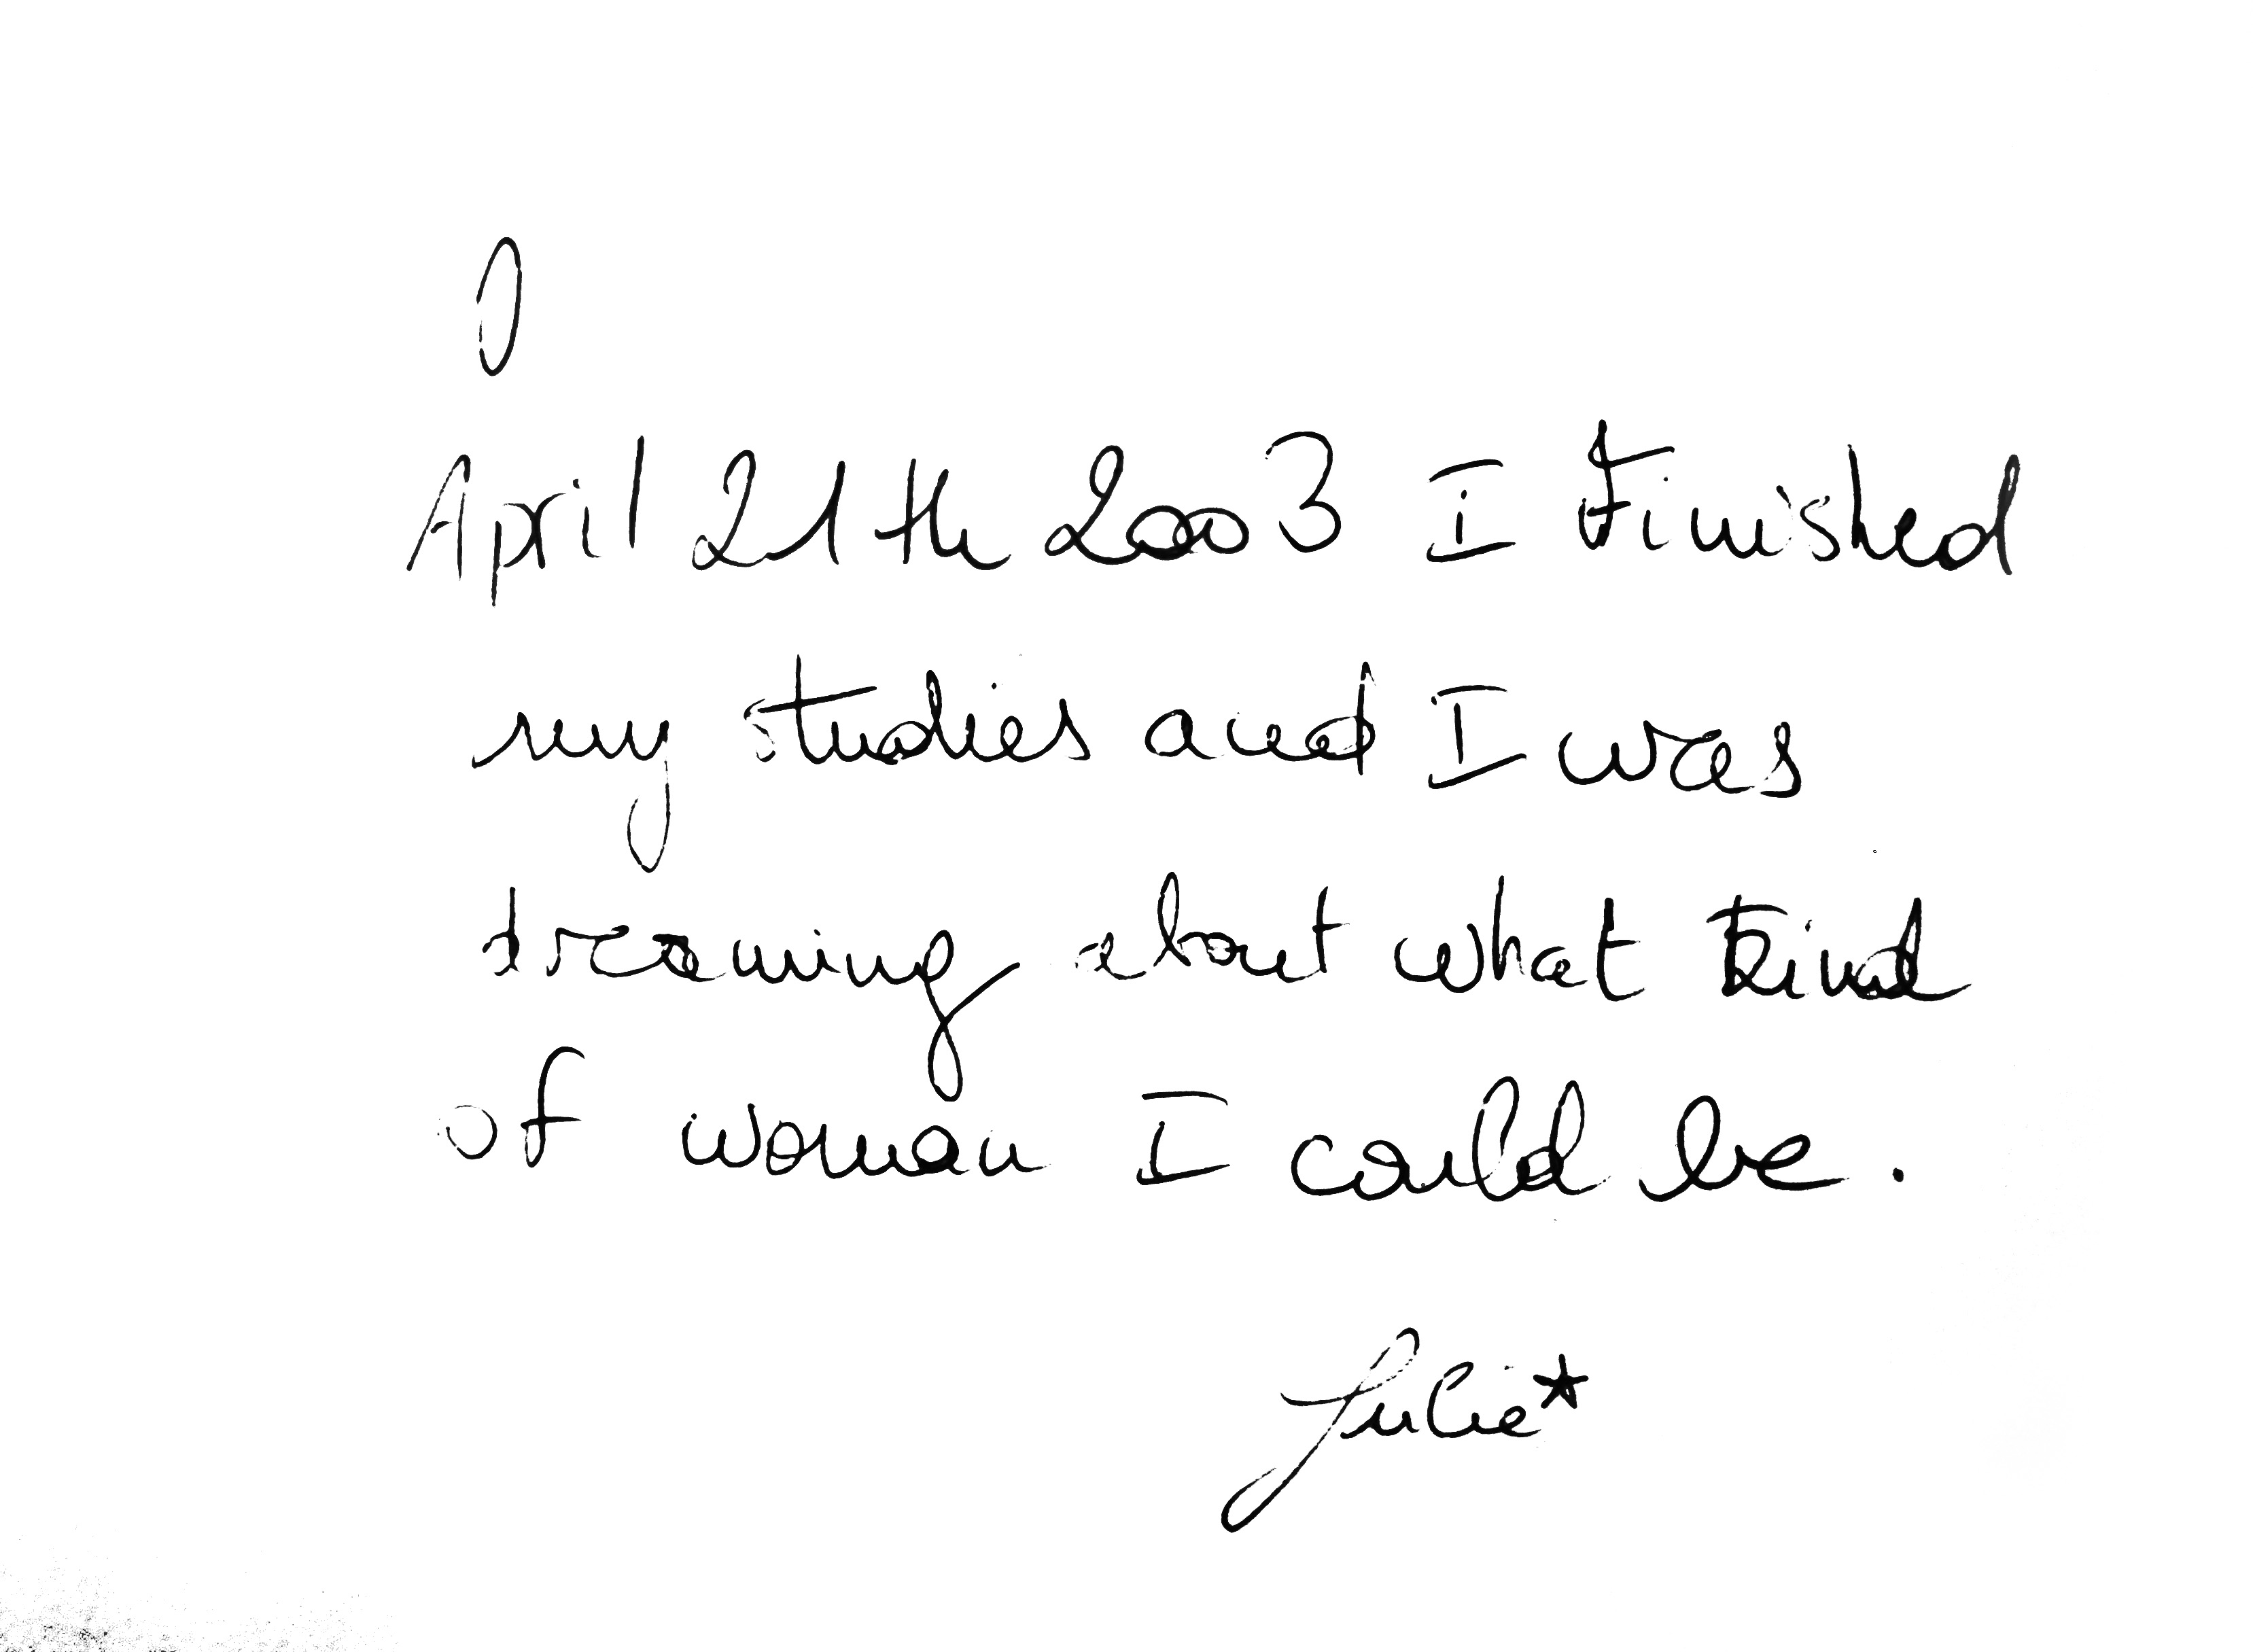 April 21th 2003 I finished
my studies and I was
dreaming about what kind
of woman I could be.
Julie*